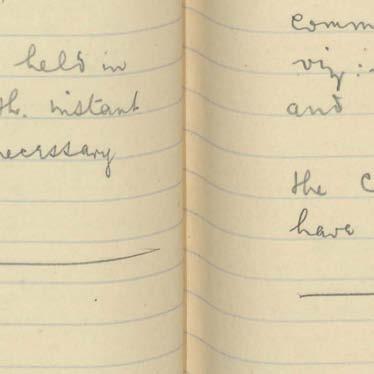 held in
the instant
necessary
comm
viz:
and
the C
have